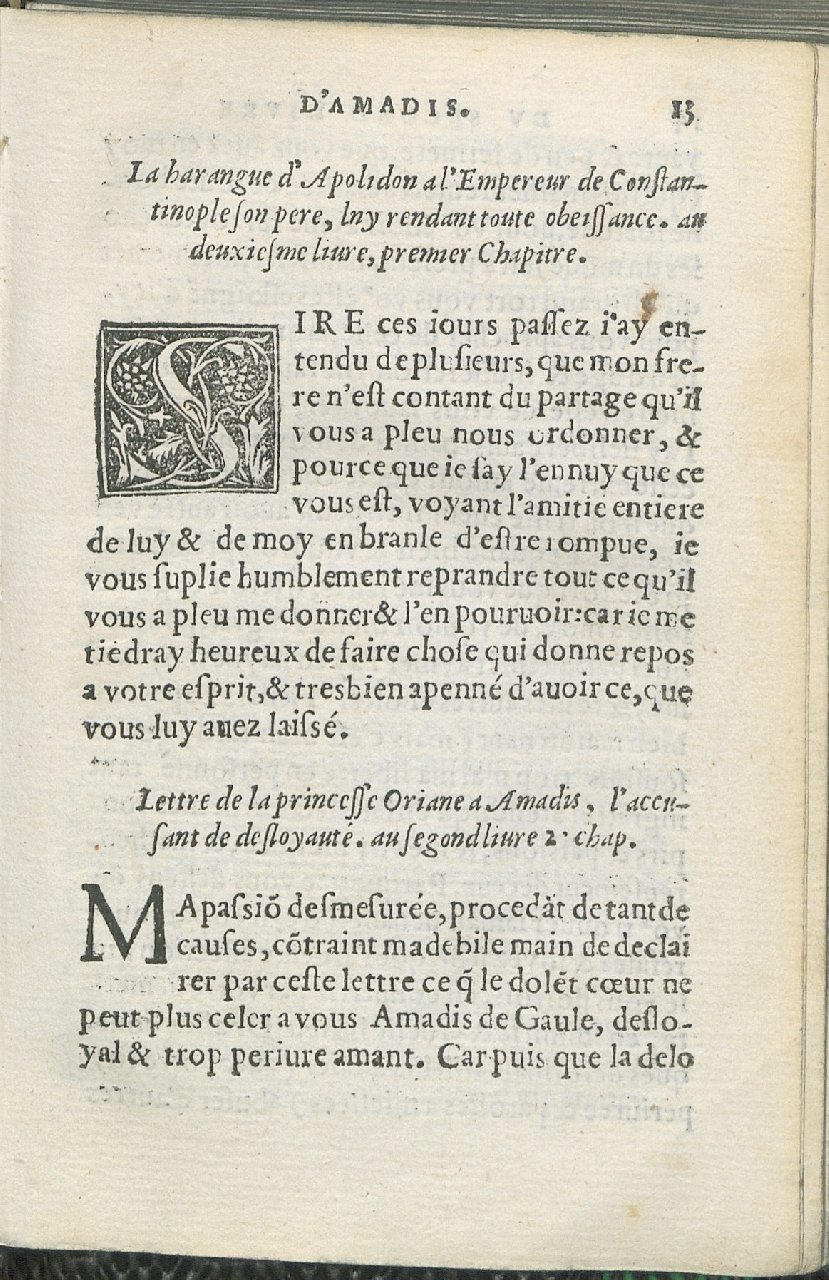 D'AMADIS. 15
La harangue d'Apolidon a l'Empereur de Constan-
tinople son pere, luy rendant toute obeissance. au
deuxiesme liure, premier Chapitre.
SIRE ces iours passez i'ay en-
tendu de plusieurs, que mon fre-
re n'est contant du partage qu'il
vous a pleu nous ordonner, &
pource que ie say l'ennuy que ce
vous est, voyant l'amitie entiere
de luy & de moy en branle d'estre rompue, ie
vous suplie humblement reprandre tout ce qu'il
vous a pleu me donner & l'en pouruoir: car ie me
tiēdray heureux de faire chose qui donne repos
a votre esprit, & tresbien apenné d'auoir ce, que
vous luy auez laissé.
Lettre de la princesse Oriane a Amadis, l'accu-
sant de desloyauté. au segond liure 2. chap.
MA passiō desmesurée, procedāt de tant de
causes, cōtraint ma debile main de declai
rer par ceste lettre ce q̄ le dolēt cœur ne
peut plus celer a vous Amadis de Gaule, deslo-
yal & trop periure amant. Car puis que la delo